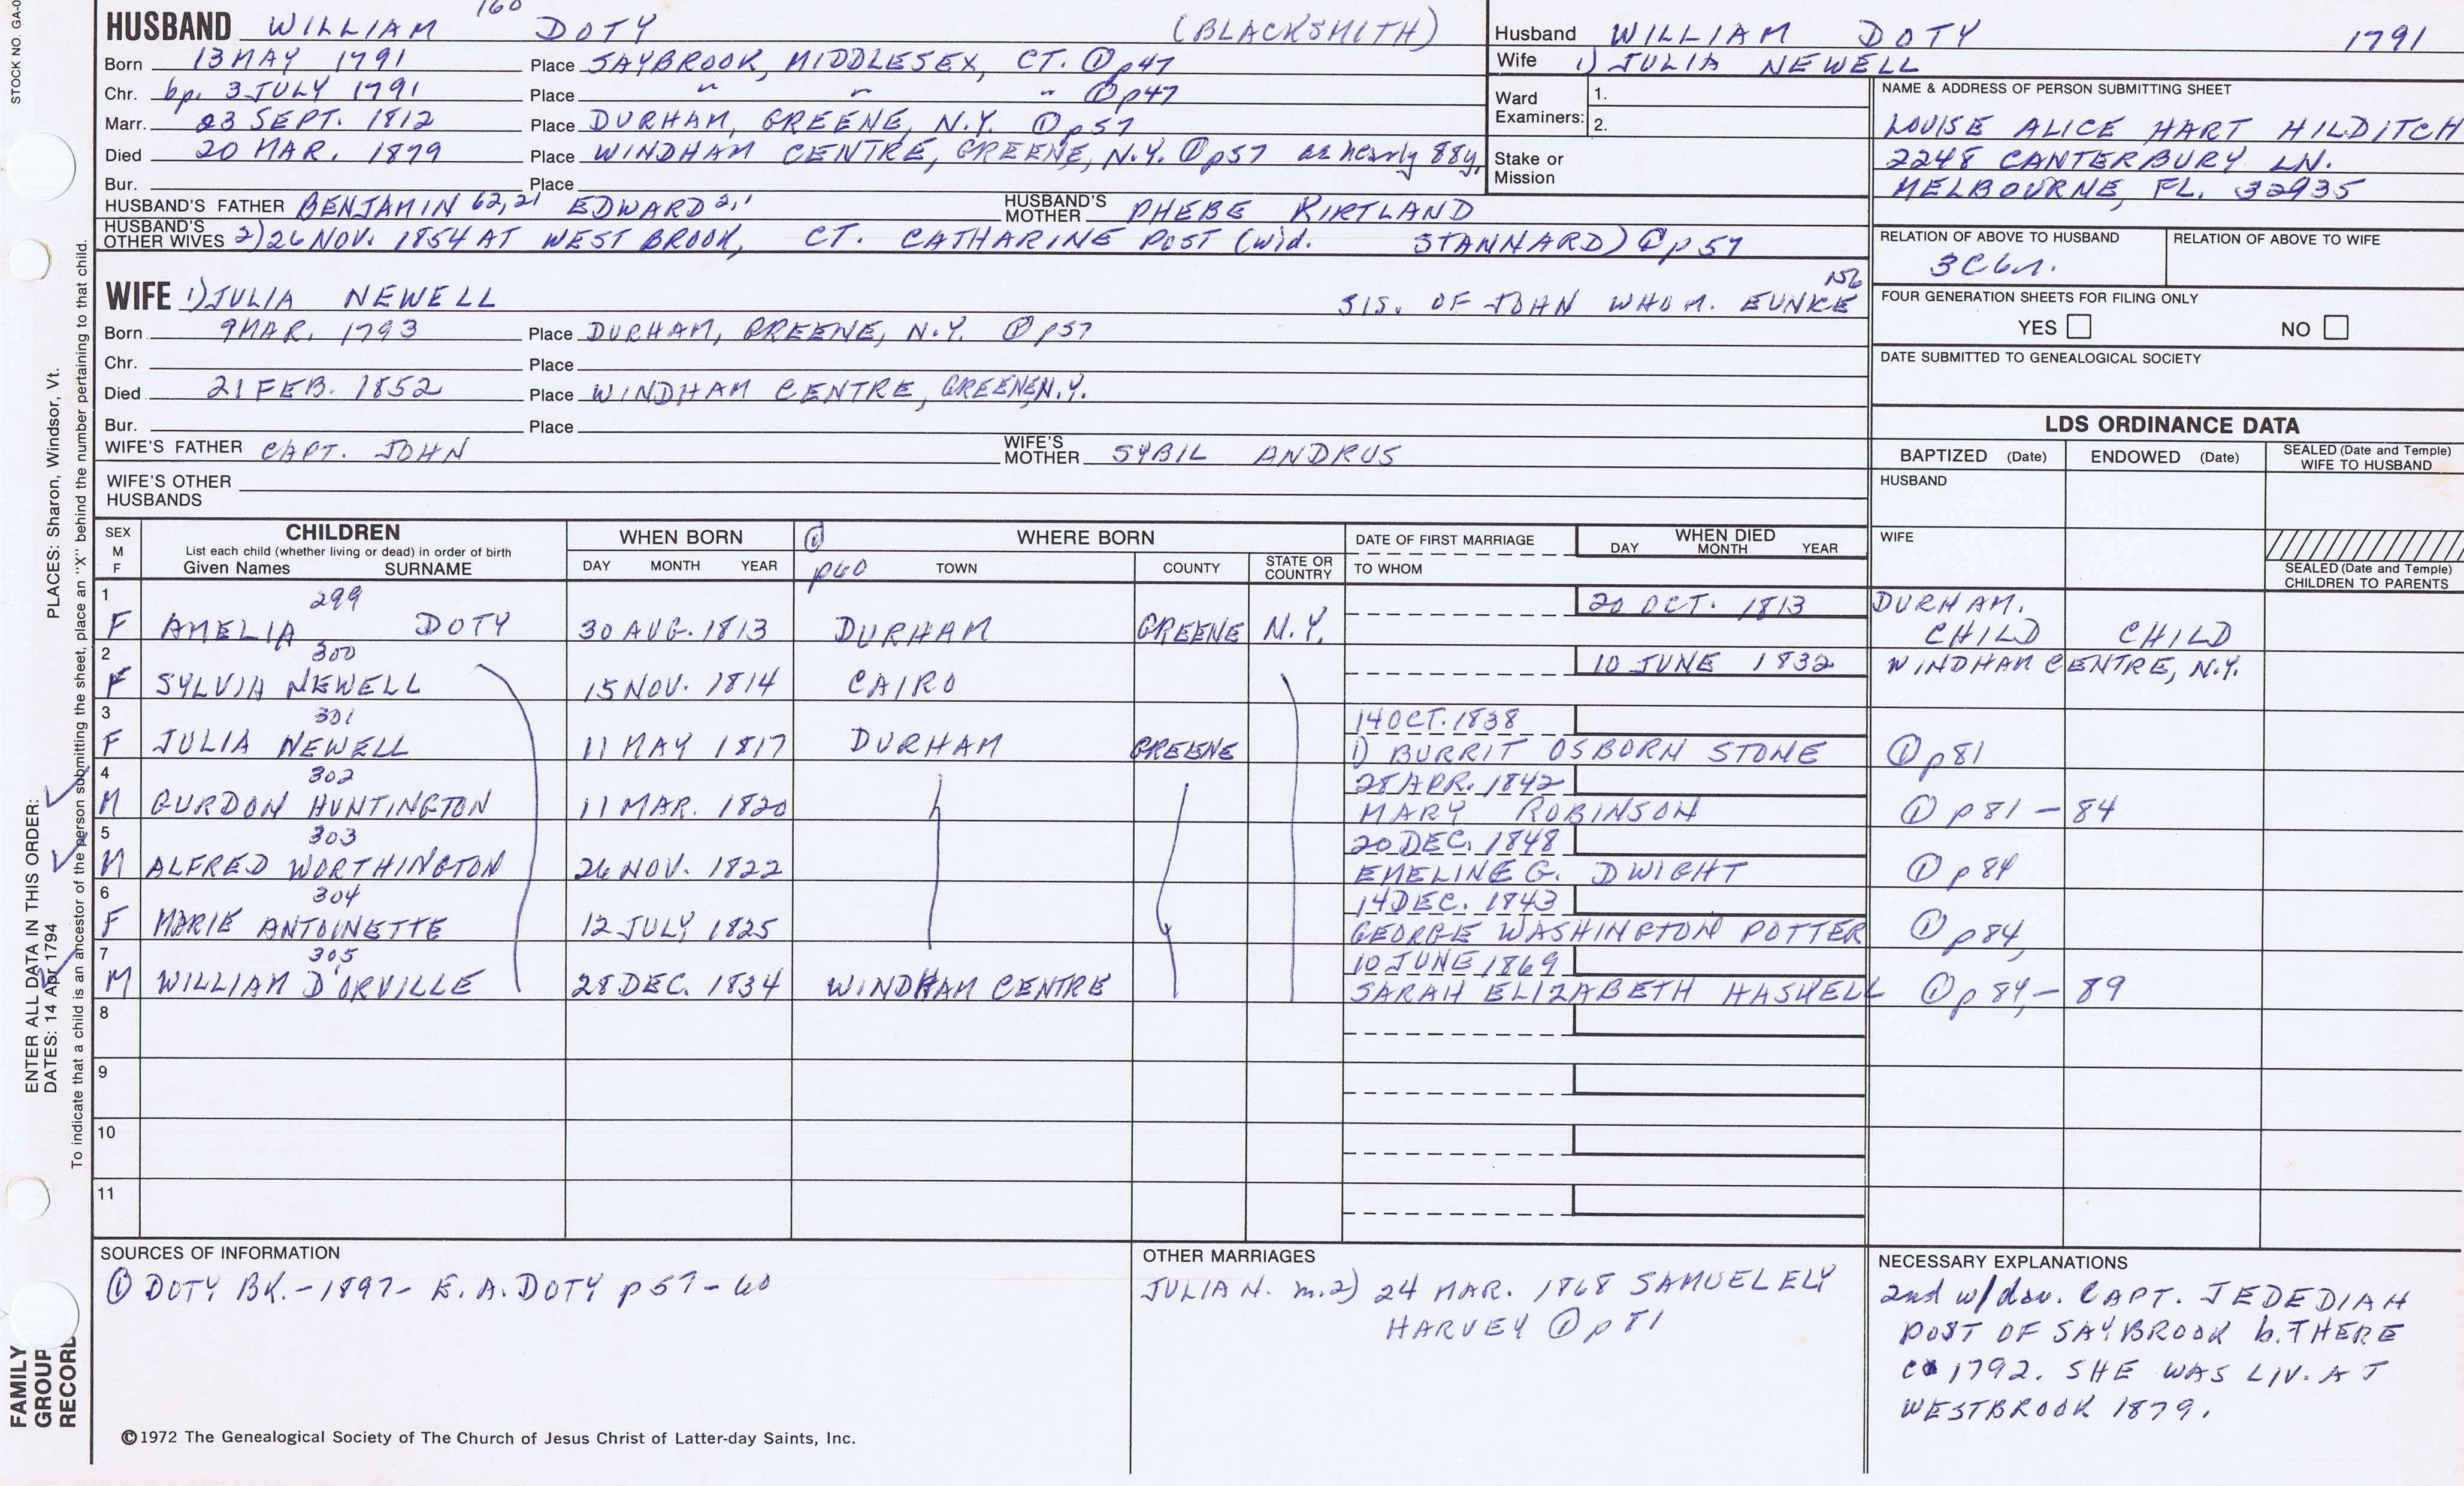 STOCK NO. GA-0
160
HUSBAND WILLIAM DOTY (BLACKSMITH)
Born 13 MAY 1791 Place SAYBROOK, MIDDLESEX, CT. ① p47
Chr. bp. 3 JULY 1791 Place " " " ① p47
Marr. 23 SEPT. 1812 Place DURHAM, GREENE, N.Y. ① p57
Died 20 MAR. 1879 Place WINDHAM CENTRE, GREENE, N.Y. ① p57 ae nearly 88y.
Bur. Place
HUSBAND'S FATHER BENJAMIN 62,21 EDWARD 2,1 HUSBAND'S MOTHER PHEBE KIRTLAND
HUSBAND'S OTHER WIVES 2) 26 NOV. 1854 AT WEST BROOK, CT. CATHARINE POST (wid. STANNARD) ① p 57
WIFE 1) JULIA NEWELL SIS. OF JOHN WHO M. EUNICE 156
Born 9 MAR. 1793 Place DURHAM, GREENE, N.Y. ① p57
Chr. Place
Died 21 FEB. 1852 Place WINDHAM CENTRE, GREENE, N.Y.
Bur. Place
WIFE'S FATHER CAPT. JOHN WIFE'S MOTHER SYBIL ANDRUS
WIFE'S OTHER HUSBANDS
Husband WILLIAM DOTY 1791
Wife 1) JULIA NEWELL
Ward Examiners: 1.
2.
Stake or Mission
NAME & ADDRESS OF PERSON SUBMITTING SHEET
LOUISE ALICE HART HILDITCH
2248 CANTERBURY LN.
MELBOURNE, FL. 32935
RELATION OF ABOVE TO HUSBAND RELATION OF ABOVE TO WIFE
3C6r.
FOUR GENERATION SHEETS FOR FILING ONLY
YES NO
DATE SUBMITTED TO GENEALOGICAL SOCIETY
LDS ORDINANCE DATA
BAPTIZED (Date) ENDOWED (Date) SEALED (Date and Temple) WIFE TO HUSBAND
HUSBAND
WIFE
SEALED (Date and Temple) CHILDREN TO PARENTS
SEX M F CHILDREN WHEN BORN ① WHERE BORN DATE OF FIRST MARRIAGE WHEN DIED
List each child (whether living or dead) in order of birth
Given Names SURNAME DAY MONTH YEAR p60 TOWN COUNTY STATE OR COUNTRY TO WHOM DAY MONTH YEAR
1 299 20 OCT. 1813 DURHAM.
F AMELIA DOTY 30 AUG. 1813 DURHAM GREENE N.Y. CHILD CHILD
2 300 10 JUNE 1832 WINDHAM CENTRE, N.Y.
F SYLVIA NEWELL 15 NOV. 1814 CAIRO
3 301 14 OCT. 1838
F JULIA NEWELL 11 MAY 1817 DURHAM GREENE 1) BURRIT OSBORN STONE ① p81
4 302 28 APR. 1842
M GURDON HUNTINGTON 11 MAR. 1820 MARY ROBINSON ① p 81 - 84
5 303 20 DEC. 1848
M ALFRED WORTHINGTON 26 NOV. 1822 EMELINE G. DWIGHT ① p 84
6 304 14 DEC. 1843
F MARIE ANTOINETTE 12 JULY 1825 GEORGE WASHINGTON POTTER ① p84,
7 305 10 JUNE 1869
M WILLIAM D'ORVILLE 28 DEC. 1834 WINDHAM CENTRE SARAH ELIZABETH HASKELL ① p 84, - 89
8
9
10
11
SOURCES OF INFORMATION
① DOTY BK. - 1897 - E. A. DOTY p 57 - 60
OTHER MARRIAGES
JULIA N. m. 2) 24 MAR. 1868 SAMUEL ELY
HARVEY ① p 81
NECESSARY EXPLANATIONS
2nd w/dau. CAPT. JEDEDIAH
POST OF SAYBROOK b. THERE
ca 1792. SHE WAS LIV. AT
WESTBROOK 1879.
©1972 The Genealogical Society of The Church of Jesus Christ of Latter-day Saints, Inc.
FAMILY
GROUP
RECORD
ENTER ALL DATA IN THIS ORDER:
DATES: 14 Apr 1794 PLACES: Sharon, Windsor, Vt.
To indicate that a child is an ancestor of the person submitting the sheet, place an "X" behind the number pertaining to that child.